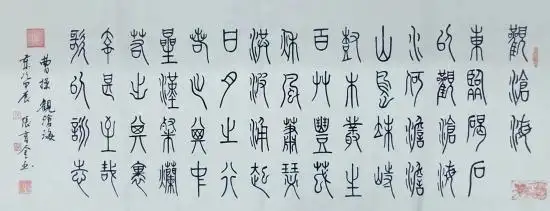 觀滄海
東臨碣石
以觀滄海
水何澹澹
山島竦峙
樹木叢生
百草豐茂
秋風蕭瑟
洪波涌起
日月之行
若出其中
星漢粲爛
若出其裏
幸甚至哉
歌以詠志
曹操 觀滄海